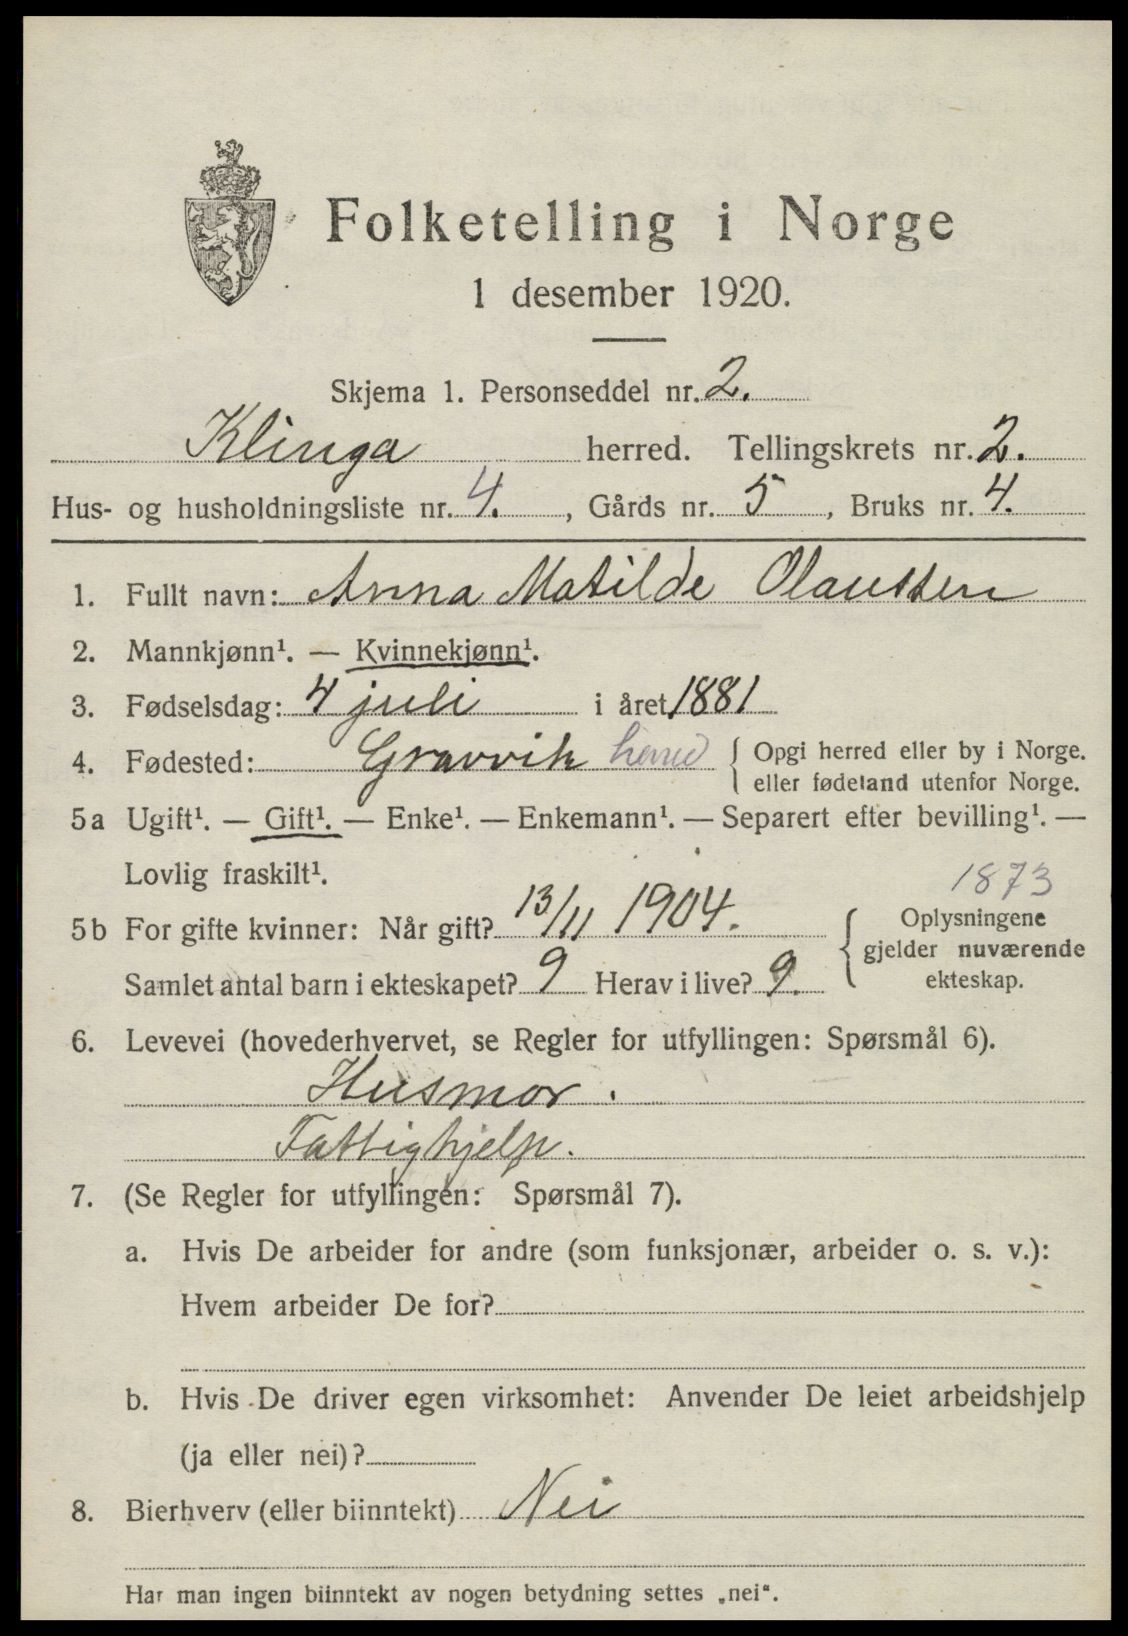 Folketelling i Norge
1 desember 1920.
Skjema 1. Personseddel nr. 2.
Klinga herred. Tellingskrets nr. 2.
Hus- og husholdningsliste nr. 4., Gårds nr. 5, Bruks nr. 4.
1. Fullt navn: Anna Matilde Olaussen
2. Mannkjønn¹. — Kvinnekjønn¹.
3. Fødselsdag: 4 juli i året 1881
4. Fødested: Gravvik herred { Opgi herred eller by i Norge.
eller fødeland utenfor Norge.
5a Ugift¹. — Gift¹. — Enke¹. — Enkemann¹. — Separert efter bevilling¹. —
Lovlig fraskilt¹.
1873
5b For gifte kvinner: Når gift? 13/11 1904. { Oplysningene
gjelder nuværende
Samlet antal barn i ekteskapet? 9 Herav i live? 9. ekteskap.
6. Levevei (hovederhvervet, se Regler for utfyllingen: Spørsmål 6).
Husmor.
Fattighjelp.
7. (Se Regler for utfyllingen: Spørsmål 7).
a. Hvis De arbeider for andre (som funksjonær, arbeider o. s. v.):
Hvem arbeider De for?
b. Hvis De driver egen virksomhet: Anvender De leiet arbeidshjelp
(ja eller nei)?
8. Bierhverv (eller biinntekt) Nei
Har man ingen biinntekt av nogen betydning settes „nei“.